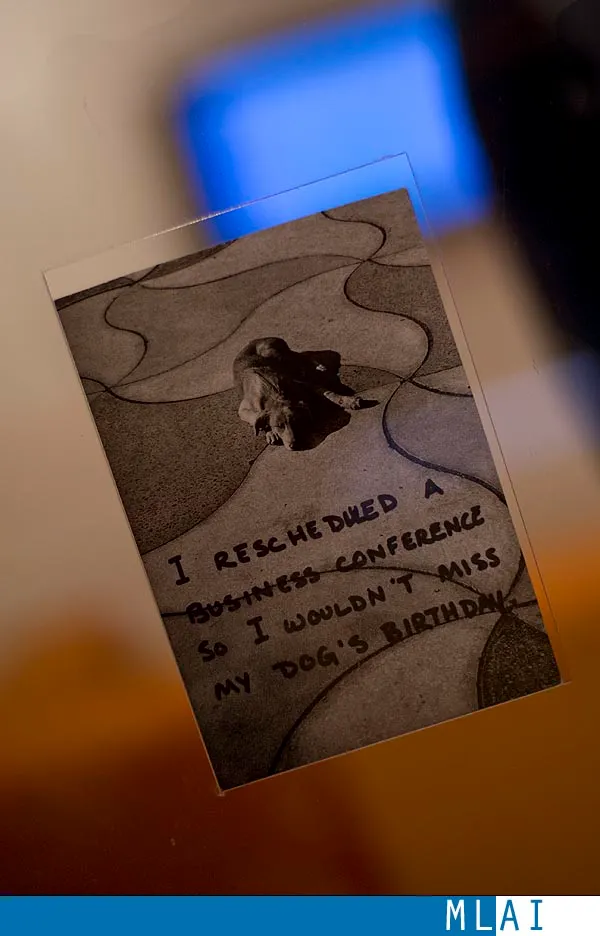 I RESCHEDULED A
BUSINESS CONFERENCE
SO I WOULDN'T MISS
MY DOG'S BIRTHDAY.
MLAI